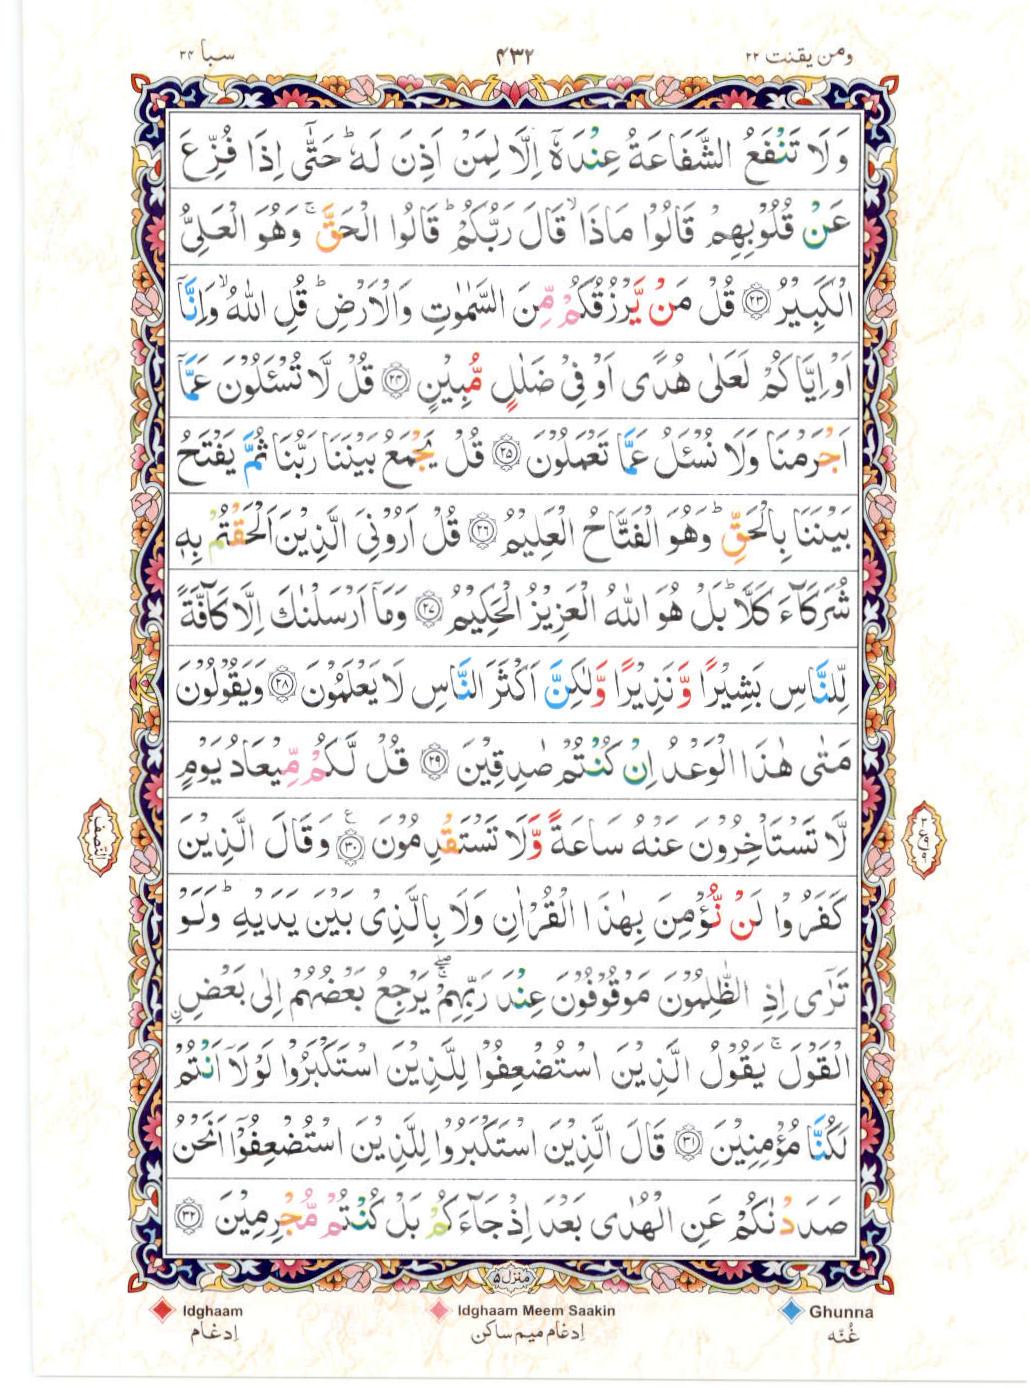 سبا ۳۴
۴۳۲
ومن یقنت ۲۲
وَلَا تَنْفَعُ الشَّفَاعَةُ عِنْدَهٗۤ اِلَّا لِمَنْ اَذِنَ لَهٗ ؕ حَتّٰۤى اِذَا فُزِّعَ
عَنْ قُلُوْبِهِمْ قَالُوْا مَاذَا ۙ قَالَ رَبُّكُمْ ؕ قَالُوا الْحَقَّ ۚ وَهُوَ الْعَلِىُّ
الْكَبِيْرُ ۝۲۳ قُلْ مَنْ يَّرْزُقُكُمْ مِّنَ السَّمٰوٰتِ وَالْاَرْضِ ؕ قُلِ اللّٰهُ ۙ وَاِنَّاۤ
اَوْ اِيَّاكُمْ لَعَلٰى هُدًى اَوْ فِىْ ضَلٰلٍ مُّبِيْنٍ ۝۲۴ قُلْ لَّا تُسْـَٔلُوْنَ عَمَّاۤ
اَجْرَمْنَا وَلَا نُسْـَٔلُ عَمَّا تَعْمَلُوْنَ ۝۲۵ قُلْ يَجْمَعُ بَيْنَنَا رَبُّنَا ثُمَّ يَفْتَحُ
بَيْنَنَا بِالْحَقِّ ؕ وَهُوَ الْفَتَّاحُ الْعَلِيْمُ ۝۲۶ قُلْ اَرُوْنِىَ الَّذِيْنَ اَلْحَقْتُمْ بِهٖ
شُرَكَآءَ كَلَّا ؕ بَلْ هُوَ اللّٰهُ الْعَزِيْزُ الْحَكِيْمُ ۝۲۷ وَمَاۤ اَرْسَلْنٰكَ اِلَّا كَآفَّةً
لِّلنَّاسِ بَشِيْرًا وَّنَذِيْرًا وَّلٰكِنَّ اَكْثَرَ النَّاسِ لَا يَعْلَمُوْنَ ۝۲۸ وَيَقُوْلُوْنَ
مَتٰى هٰذَا الْوَعْدُ اِنْ كُنْتُمْ صٰدِقِيْنَ ۝۲۹ قُلْ لَّكُمْ مِّيْعَادُ يَوْمٍ
لَّا تَسْتَاْخِرُوْنَ عَنْهُ سَاعَةً وَّلَا تَسْتَقْدِمُوْنَ ۝۳۰ ع وَقَالَ الَّذِيْنَ
كَفَرُوْا لَنْ نُّؤْمِنَ بِهٰذَا الْقُرْاٰنِ وَلَا بِالَّذِىْ بَيْنَ يَدَيْهِ ؕ وَلَوْ
تَرٰٓى اِذِ الظّٰلِمُوْنَ مَوْقُوْفُوْنَ عِنْدَ رَبِّهِمْ ۖۚ يَرْجِعُ بَعْضُهُمْ اِلٰى بَعْضِ ِن
الْقَوْلَ ۚ يَقُوْلُ الَّذِيْنَ اسْتُضْعِفُوْا لِلَّذِيْنَ اسْتَكْبَرُوْا لَوْلَاۤ اَنْتُمْ
لَكُنَّا مُؤْمِنِيْنَ ۝۳۱ قَالَ الَّذِيْنَ اسْتَكْبَرُوْا لِلَّذِيْنَ اسْتُضْعِفُوْۤا اَنَحْنُ
صَدَدْنٰكُمْ عَنِ الْهُدٰى بَعْدَ اِذْ جَآءَكُمْ بَلْ كُنْتُمْ مُّجْرِمِيْنَ ۝۳۲
النصف
منزل ۵
Idghaam
Idghaam Meem Saakin
Ghunna
اِدغام
اِدغام میم ساکن
غُنّه